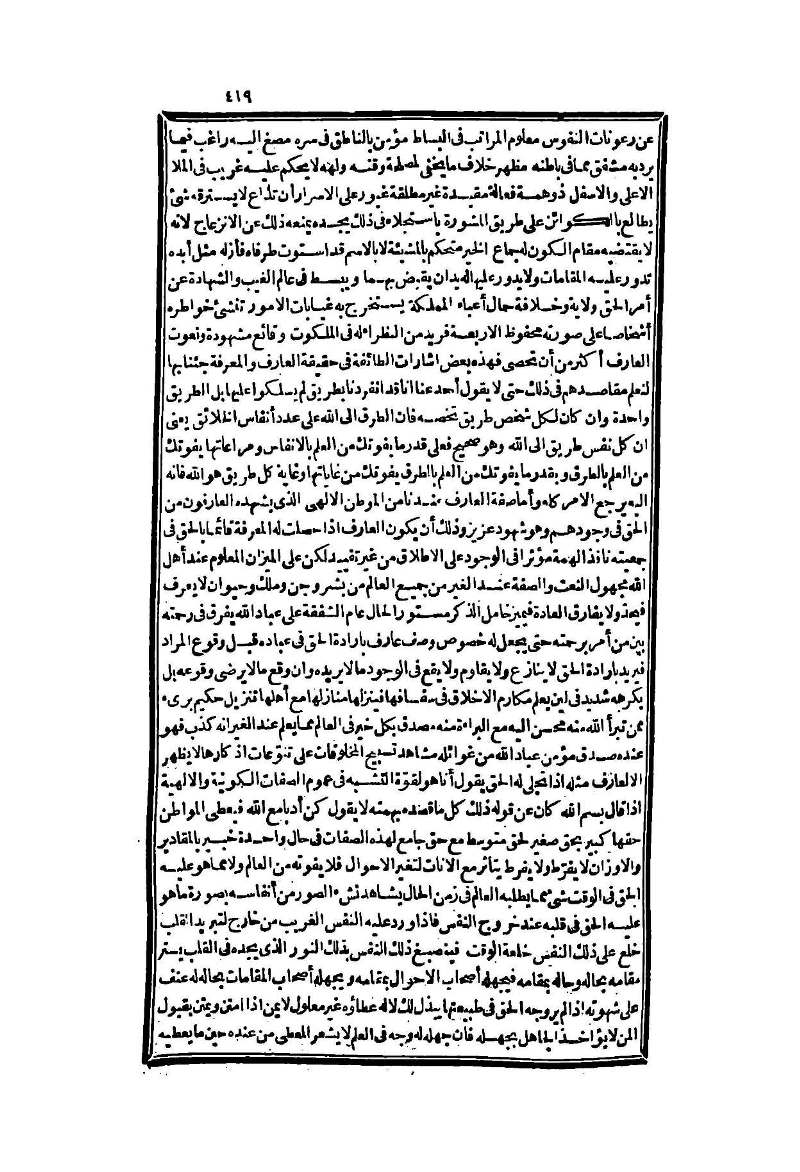 ٤١٩
عن رعونات النفوس معلوم المراتب فى البساط مؤمن بالناطق فى سره مصغ اليه راغب فيما
يرد به مشفق مما فى باطنه مظهر خلاف ما يخفى لمصلحة وقته وله لا يحكم عليه غريب فى الملا
الاعلى والاسفل ذو همة فعالة مقيدة غير مطلقة غيور على الاسرار أن تذاع لا يسترقه شئ
يطالع بالكوائن على طريق المشورة باستجلاء فى ذلك يجده يمنعه ذلك عن الانزعاج لانه
لا يقتضيه مقام الكون له جماع الخير متحكم بالمشيئة لا بالاسم قد استوت طرفاه فأزله مثل أبده
تدور عليه المقامات ولا يدور عليها له يدان يقبض بهما ويبسط فى عالم الغيب والشهادة عن
أمر الحق ولاية وخلافة حمال أعباء المملكة يستخرج به غيابات الامور تنشئ خواطره
أشخاصا على صورته محفوظ الاربعة فريد من النظراء له فى الملكوت وقائع مشهودة ونعوت
العارف أكثر من أن تحصى فهذه بعض اشارات الطائفة فى حقيقة العارف والمعرفة جئنا بها
لتعلم مقاصدهم فى ذلك حتى لا يقول أحد عنا انا قد انفردنا بطريق لم يسلكوا عليها بل الطريق
واحدة وان كان لكل شخص طريق تخصه فان الطرق الى الله على عدد أنفاس الخلائق يعنى
ان كل نفس طريق الى الله وهو صحيح فعلى قدر ما يفوتك من العلم بالانفاس ومراعاتها يفوتك
من العلم بالطرق وبقدر ما يفوتك من العلم بالطرق يفوتك من غاياتها وغاية كل طريق هو الله فانه
اليه يرجع الامر كله وأما صفة العارف عندنا من الموطن الالهى الذى يشهده العارفون من
الحق فى وجودهم وهو شهود عزيز وذلك أن يكون العارف اذا حصلت له المعرفة قائما بالحق فى
جمعيته نافذ الهمة مؤثرا فى الوجود على الاطلاق من غير تقييد لكن على الميزان المعلوم عند أهل
الله مجهول النعت والصفة عند الغير من جميع العالم من بشر وجن وملك وحيوان لا يعرف
فيحد ولا يفارق العادة فيميز خامل الذكر مستور الحال عام الشفقة على عباد الله يفرق فى رحمته
بين من أمر برحمته حتى يجعل له خصوص وصف عارف بارادة الحق فى عباده قبل وقوع المراد
فيريد بارادة الحق لا ينازع ولا يقاوم ولا يقع فى الوجود ما لا يريده وان وقع ما لا يرضى وقوعه بل
يكرهه شديد فى لين يعلم مكارم الاخلاق فى سفسافها فينزلها منازلها مع أهلها تنزيل حكيم برىء
ممن تبرأ الله منه محسن اليه مع البراءة منه مصدق بكل خبر فى العالم مما يعلم عند الغير انه كذب فهو
عنده صدق مؤمن عباد الله من غوائله مشاهد تسبيح المخلوقات على تنوعات اذكارها لا يظهر
الا لعارف مثله اذا تجلى له الحق يقول أنا هو لقوة التشبه فى عموم الصفات الكونية والالهية
اذا قال بسم الله كان عن قوله ذلك كل ما قصده بهمته لا يقول كن أدبا مع الله فيعطى المواطن
حقها كبير بحق صغير لحق متوسط مع حق جامع لهذه الصفات فى حال واحدة خبير بالمقادير
والاوزان لا يفرط ولا يفرط يتأثر مع الانات لتغير الاحوال فلا يفوته من العالم ولا مما هو عليه
الحق فى الوقت شئ مما يطلبه العالم فى زمن الحال يشاهد نشء الصور من أنفاسه بصورة ما هو
عليه الحق فى قلبه عند خروج النفس فاذا ورد عليه النفس الغريب من خارج لتبريد القلب
خلع على ذلك النفس خلعة الوقت فينصبغ ذلك النفس بذلك النور الذى يجده فى القلب يستر
مقامه بحاله وحاله بمقامه فيجهله أصحاب الاحوال بمقامه ويجهله أصحاب المقامات بحاله له عنف
على شهوته اذا لم ير وجه الحق فى طبيعتها يبذل لك لا له عطاؤه غير معلول لا يمن اذا امتن ويمتن بقبول
المن لا يؤاخذ الجاهل بجهله فان جهله له وجه فى العلم لا يشعر المعطى من عنده حين ما يعطيه